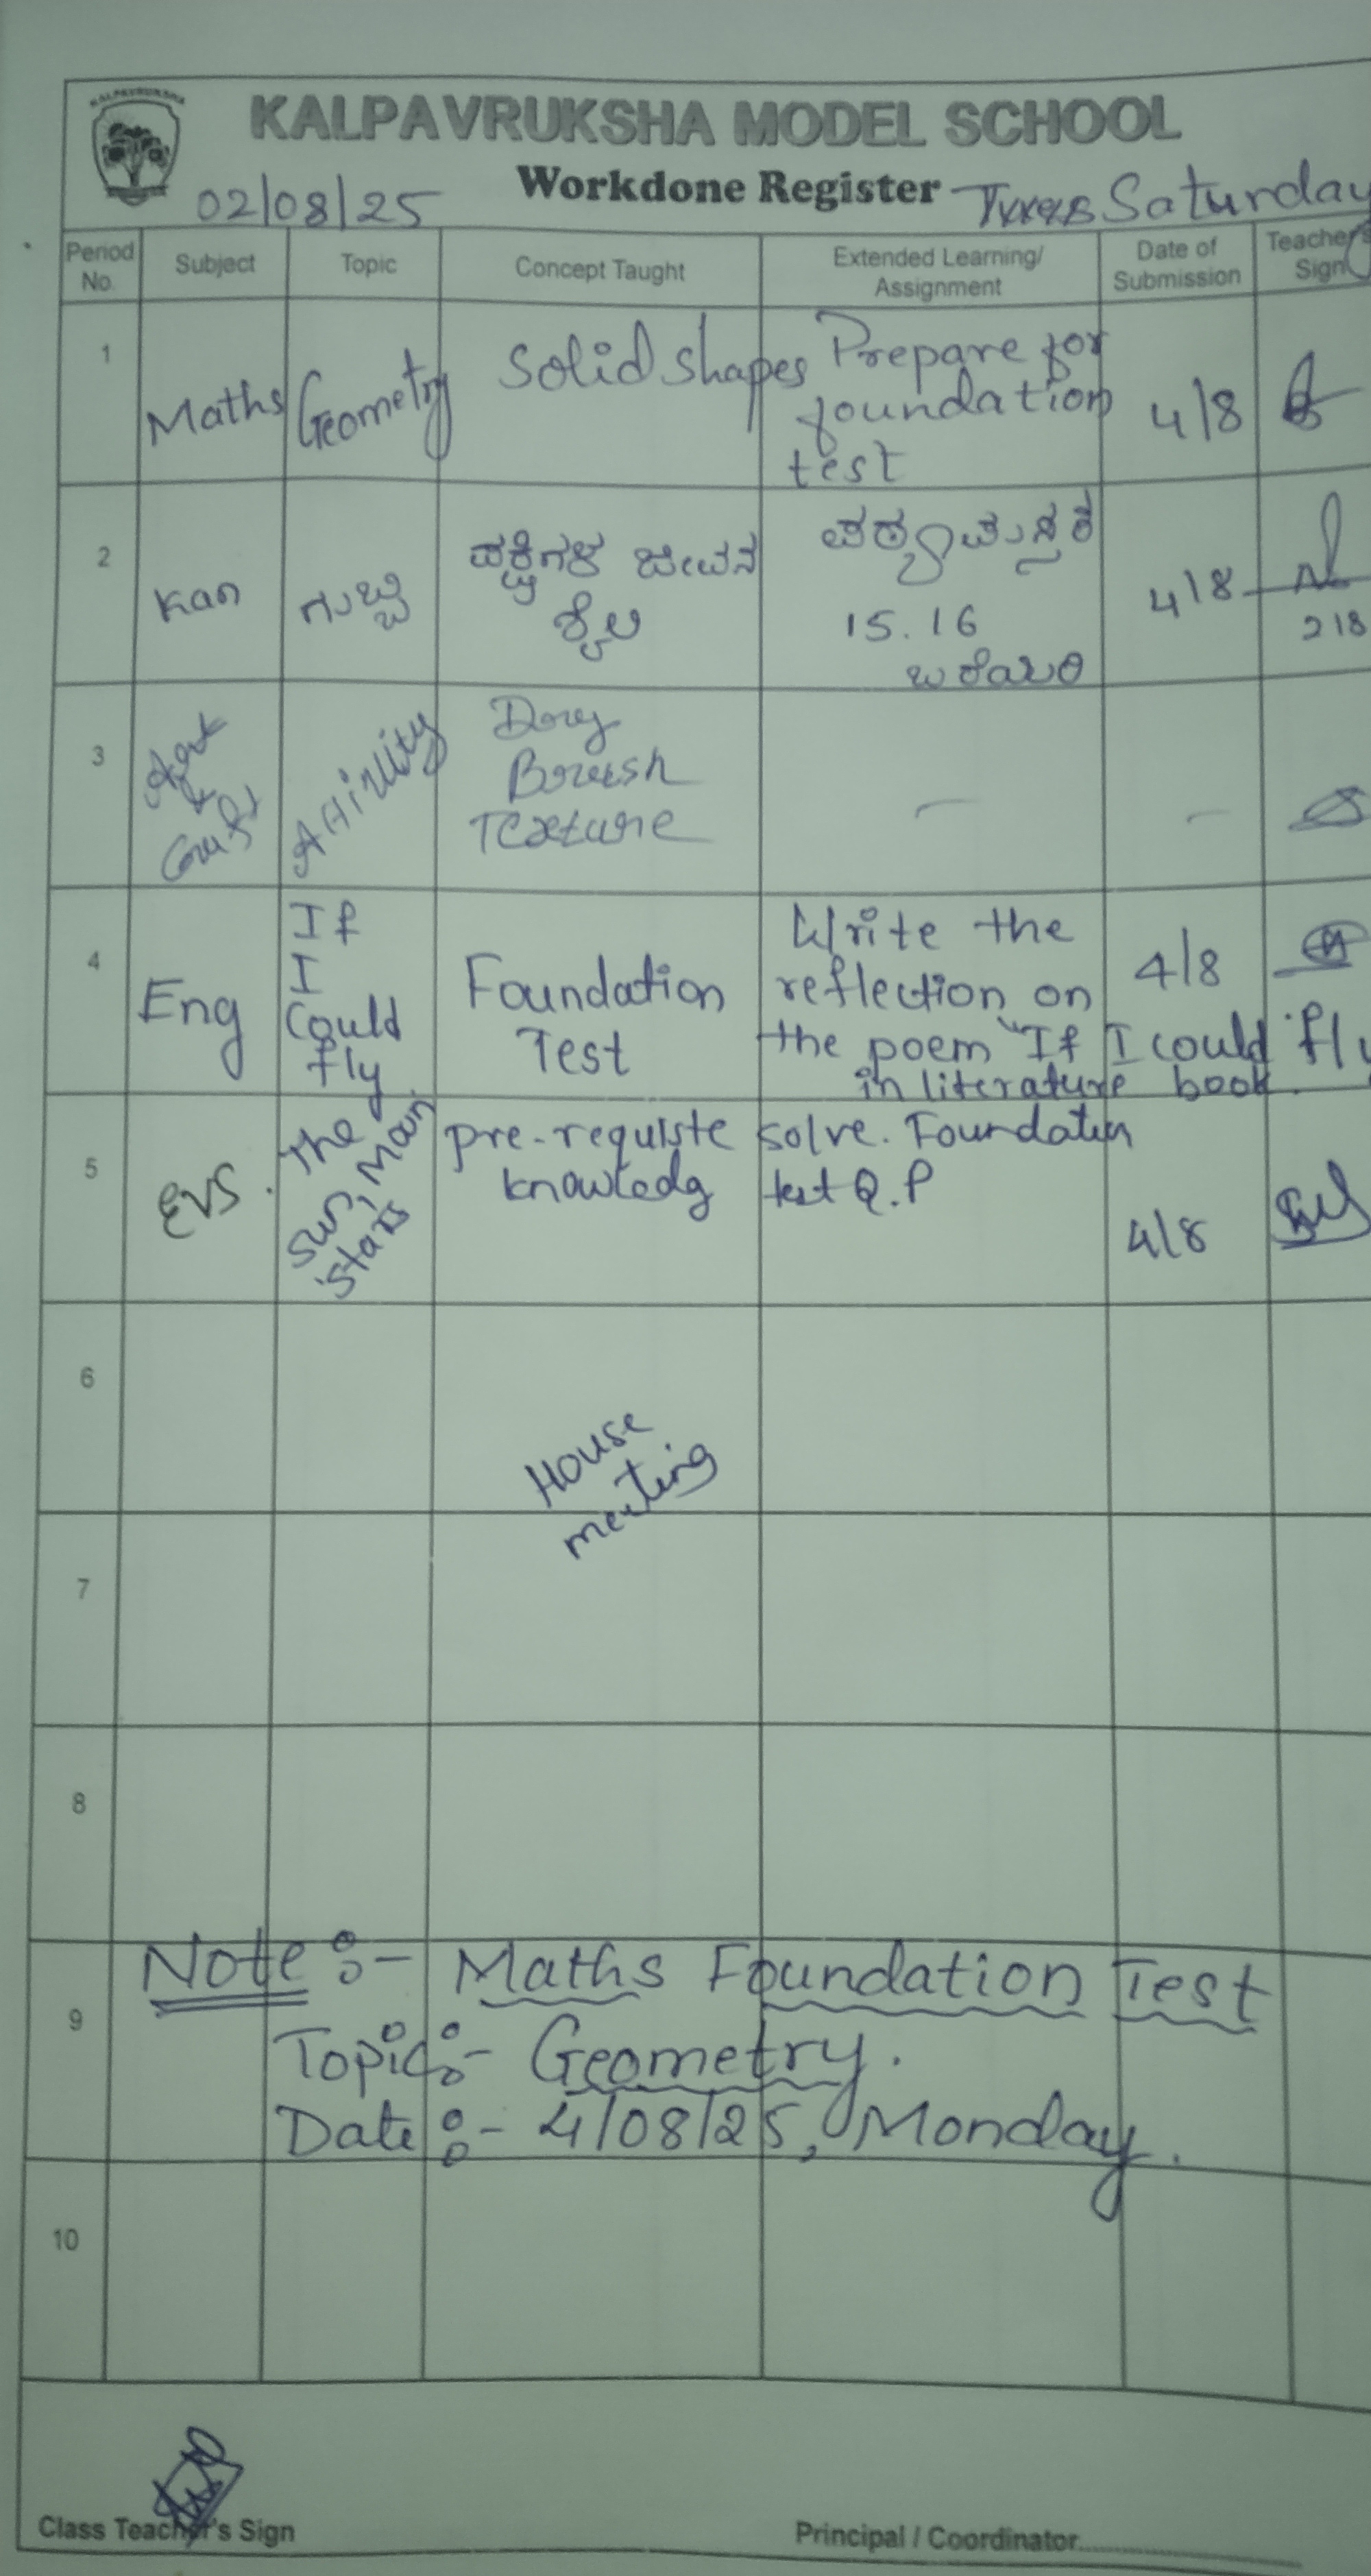 KALPAVRUKSHA
KALPAVRUKSHA MODEL SCHOOL
Workdone Register
02/08/25 Saturday
Period No. Subject Topic Concept Taught Extended Learning/ Assignment Date of Submission Teacher's Sign
1 Maths Geometry Solid Shapes Prepare for
foundation
test 4/8
2 Kan ಗುಬ್ಬಿ ಪಕ್ಷಿಗಳ ಜೀವನ
ಶೈಲಿ
ಪಠ್ಯಪುಸ್ತಕ
15.16
ಬರೆಯಿರಿ
4/8
2/8
3 Art
&
Craft
Activity
Dry
Brush
Texture
– –
4 Eng
If
I
Could
fly
Foundation
Test
Write the
reflection on
the poem "If I could fly
in literature book.
4/8
5 EVS.
The
Sun, Moon
stars
pre-requiste
knowledg
solve. Foundation
test Q.P
4/8
6
House
meeting
7
8
9
Note :- Maths Foundation Test
Topic:- Geometry.
Date :- 4/08/25, Monday.
10
Class Teacher's Sign
Principal / Coordinator